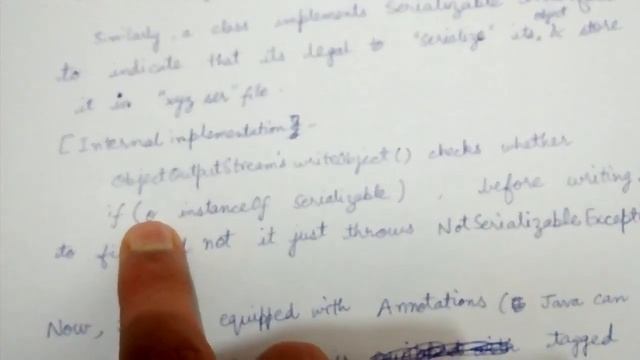 Similarly, a class implements Serializable
to indicate that its legal to "serialize" its object & store
it in "xyz ser" file.
[Internal implementation] -
ObjectOutputStream's writeObject() checks whether
if (o instanceOf Serializable), before writing
to not it just throws NotSerializableExcept
Now, equipped with Annotations ( Java can
tagged